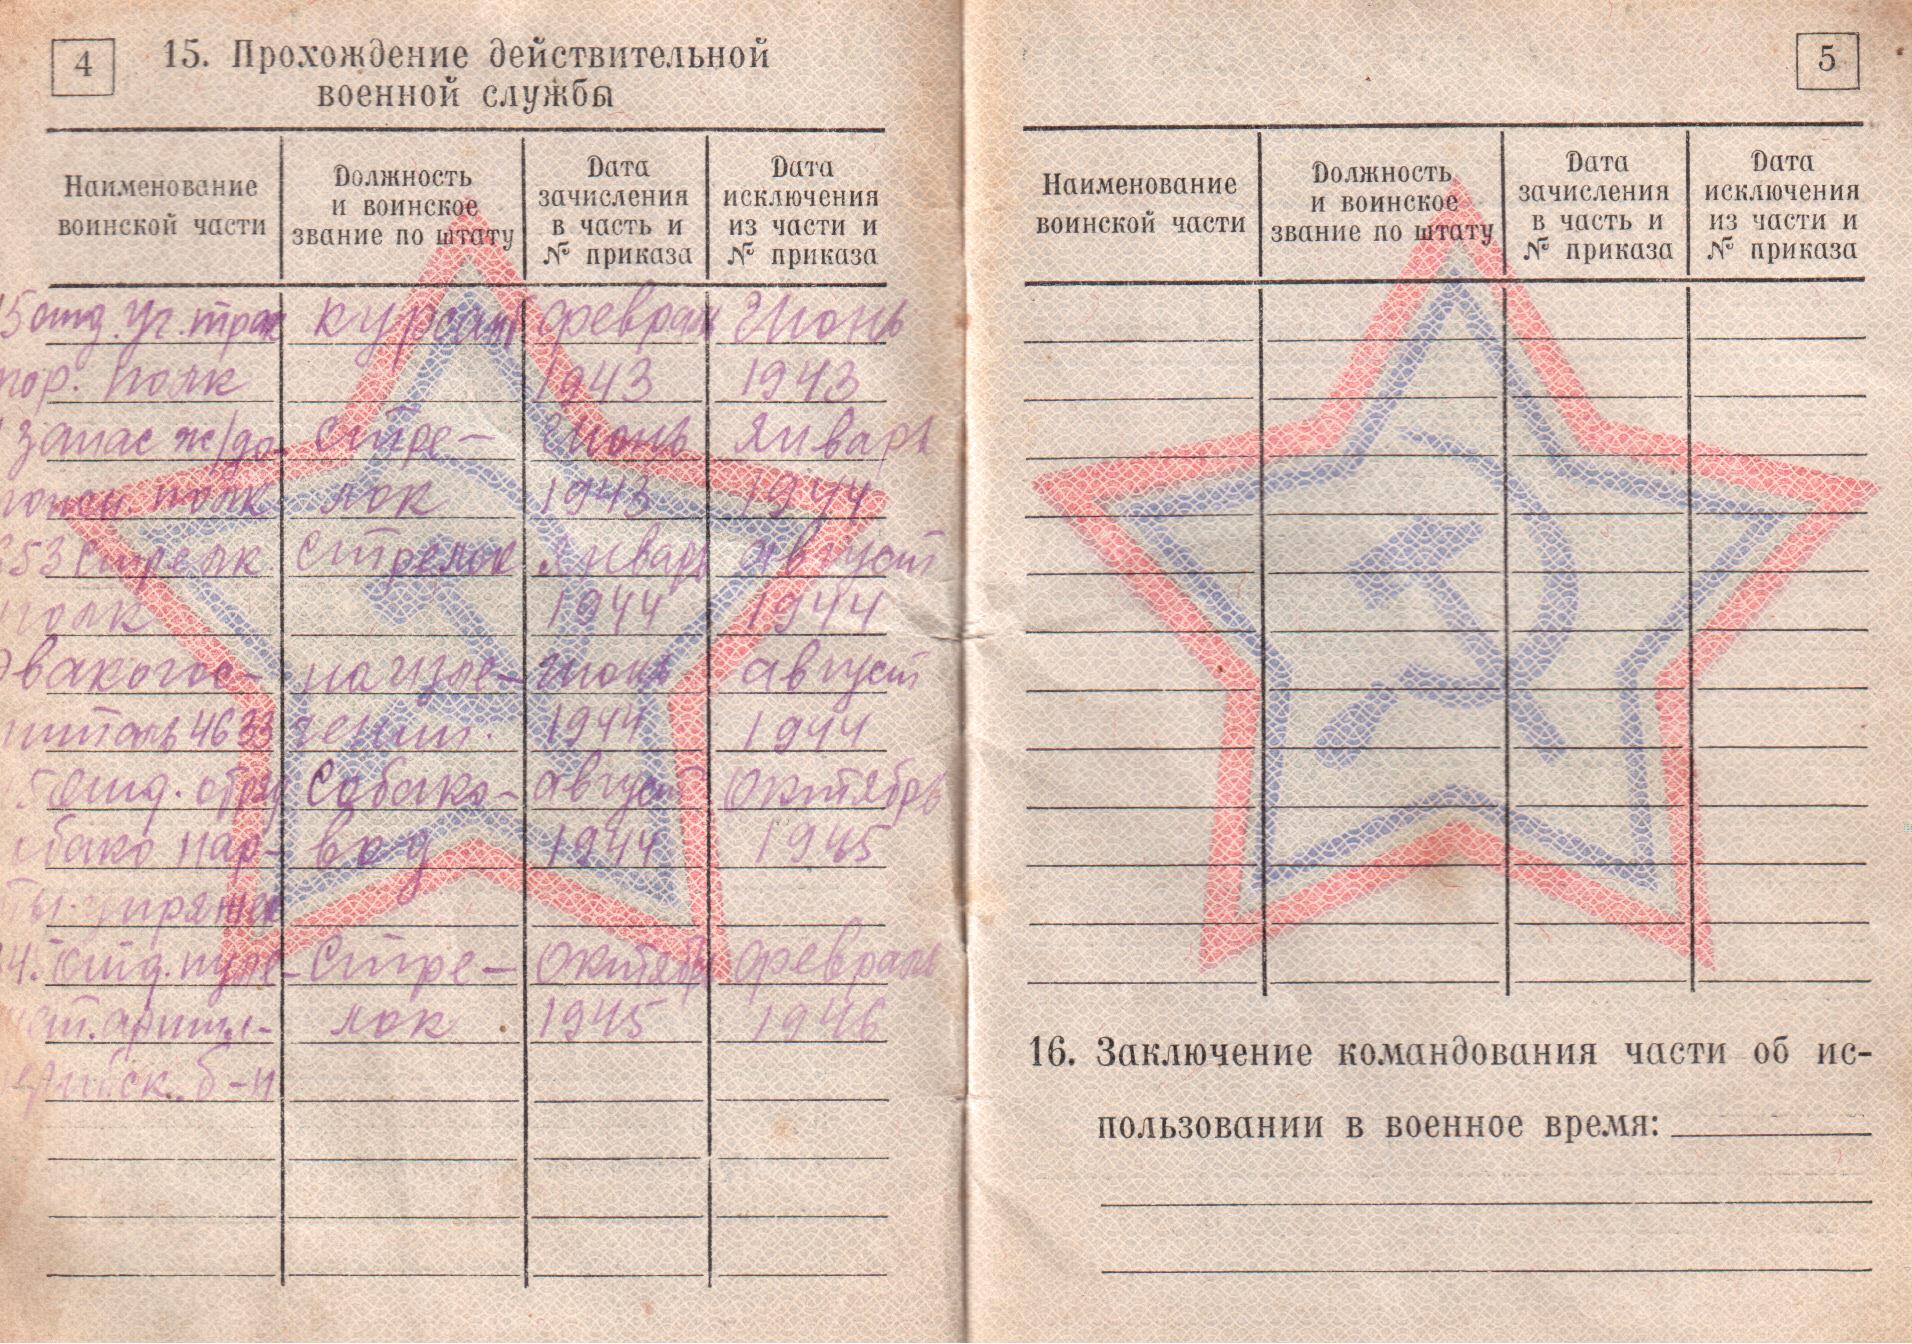 4
15. Прохождение действительной
военной службы
Наименование
воинской части
Должность
и воинское
звание по штату
Дата
зачисления
в часть и
№ приказа
Дата
исключения
из части и
№ приказа
5 отд. уг. трак курсант феврал Июнь
тор. полк 1943 1943
запас ж/до- Стре- Июнь Январь
полк лок 1943 1944
653 Стрелк Стрелок Январь август
полк 1944 1944
Эвакогос- на изле- Июнь август
питаль 4633 чении. 1944 1944
отд. отряд Собако- август Октябрь
собако нар- вод 1944 1945
ты. упряжек
4. отд. пуле- Стре- Октябрь февраль
лок 1945 1946
б-н
5
Наименование
воинской части
Должность
и воинское
звание по штату
Дата
зачисления
в часть и
№ приказа
Дата
исключения
из части и
№ приказа
16. Заключение командования части об ис-
пользовании в военное время: